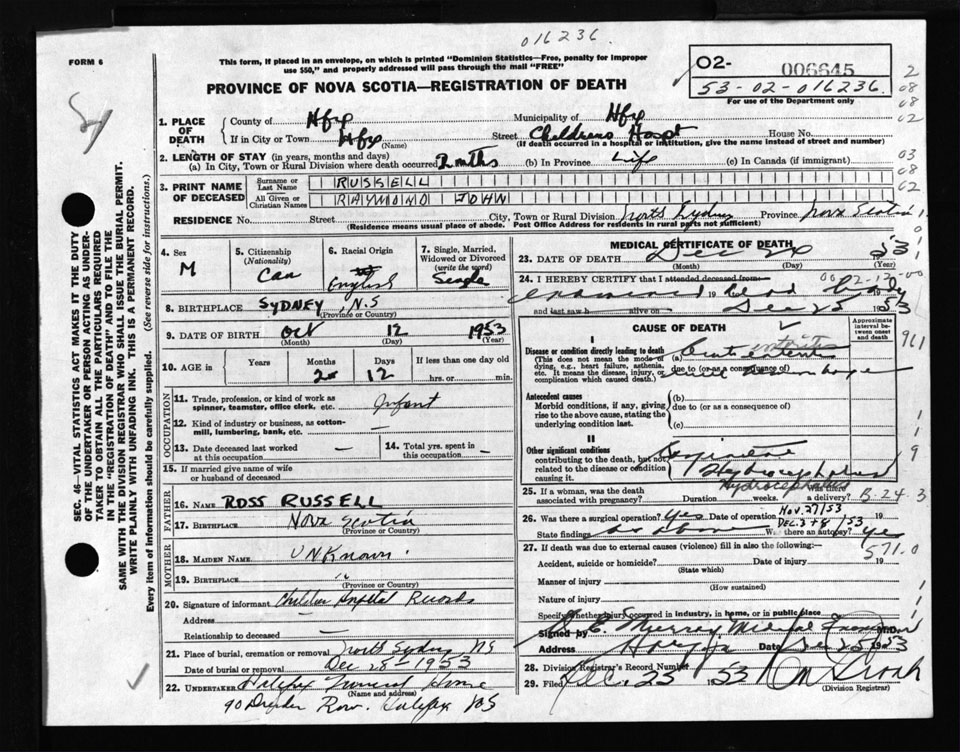 016236.
FORM 6
This form, if placed in an envelope, on which is printed "Dominion Statistics—Free, penalty for improper
use $50," and properly addressed will pass through the mail "FREE"
02- 006645
53-02-016236.
For use of the Department only
PROVINCE OF NOVA SCOTIA—REGISTRATION OF DEATH
1. PLACE OF DEATH
County of Hfx Municipality of Hfx
If in City or Town Hfx (Name) Street Childrens Hospt House No.
(If death occurred in a hospital or institution, give the name instead of street and number)
2. LENGTH OF STAY (in years, months and days)
(a) In City, Town or Rural Division where death occurred 2 mths (b) In Province Life (c) In Canada (if immigrant)
3. PRINT NAME OF DECEASED
Surname or Last Name RUSSELL
All Given or Christian Names RAYMOND JOHN
RESIDENCE No. Street City, Town or Rural Division North Sydney Province Nova Scotia
(Residence means usual place of abode. Post Office Address for residents in rural parts not sufficient)
4. Sex M
5. Citizenship (Nationality) Can
6. Racial Origin English
7. Single, Married, Widowed or Divorced (write the word) Single
8. BIRTHPLACE SYDNEY N.S
(Province or Country)
9. DATE OF BIRTH Oct 12 1953
(Month) (Day) (Year)
10. AGE in Years Months 2 Days 12 If less than one day old
hrs. or min.
OCCUPATION
11. Trade, profession, or kind of work as
spinner, teamster, office clerk, etc. Infant
12. Kind of industry or business, as cotton-
mill, lumbering, bank, etc. —
13. Date deceased last worked
at this occupation —
14. Total yrs. spent in
this occupation —
15. If married give name of wife
or husband of deceased
FATHER
16. Name ROSS RUSSELL
17. Birthplace Nova Scotia
(Province or Country)
MOTHER
18. Maiden Name UNKnown
19. Birthplace "
(Province or Country)
20. Signature of informant Children Hospital Records
Address
Relationship to deceased —
21. Place of burial, cremation or removal North Sydney NS
Date of burial or removal Dec 28 - 1953
22. Undertaker Halifax Funeral Home
(Name and address)
Row. Halifax NS
MEDICAL CERTIFICATE OF DEATH
23. DATE OF DEATH Dec 53
(Month) (Day) (Year)
24. I HEREBY CERTIFY that I attended deceased from
examined 19 dead body
and last saw h alive on Dec 25 1953
CAUSE OF DEATH
Approximate interval between onset and death
I
Disease or condition directly leading to death
(This does not mean the mode of
dying, e.g., heart failure, asthenia,
etc. It means the disease, injury, or
complication which caused death.)
(a)
due to (or as a consequence of)
Antecedent causes
Morbid conditions, if any, giving
rise to the above cause, stating the
underlying condition last.
(b)
due to (or as a consequence of)
(c)
II
Other significant conditions
contributing to the death, but not
related to the disease or condition
causing it.
Hydrocephalus
Hydrocephalus
25. If a woman, was the death
associated with pregnancy? Duration weeks. Was there a delivery?
26. Was there a surgical operation? Yes Date of operation Nov. 27/53
Dec. 3 + 8/53
State findings Was there an autopsy? Yes
571.0
27. If death was due to external causes (violence) fill in also the following:—
Accident, suicide or homicide? Date of injury 19
(State which)
Manner of injury
(How sustained)
Nature of injury
Specify whether injury occurred in industry, in home, or in public place
Signed by Murray
Address Halifax Date Dec 25 1953
28. Division Registrar's Record Number
29. Filed Dec. 25 1953
(Division Registrar)
SEC. 46—VITAL STATISTICS ACT MAKES IT THE DUTY
OF THE UNDERTAKER OR PERSON ACTING AS UNDER-
TAKER TO OBTAIN ALL THE PARTICULARS REQUIRED
IN THE "REGISTRATION OF DEATH" AND TO FILE THE
SAME WITH THE DIVISION REGISTRAR WHO SHALL ISSUE THE BURIAL PERMIT.
WRITE PLAINLY WITH UNFADING INK. THIS IS A PERMANENT RECORD.
Every item of information should be carefully supplied. (See reverse side for instructions.)